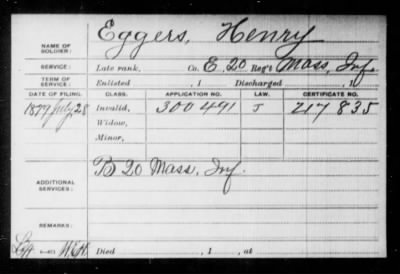 NAME OF SOLDIER: Eggers, Henry
SERVICE: Late rank, Co. E. 20 Reg't Mass, Inf.
TERM OF SERVICE: Enlisted , 1 Discharged , 1
DATE OF FILING. CLASS. APPLICATION NO. LAW. CERTIFICATE NO.
1879 July, 28 Invalid, 300491 J 217835
Widow,
Minor,
ADDITIONAL SERVICES: B 20 Mass, Inf.
REMARKS:
Died , 1 , at